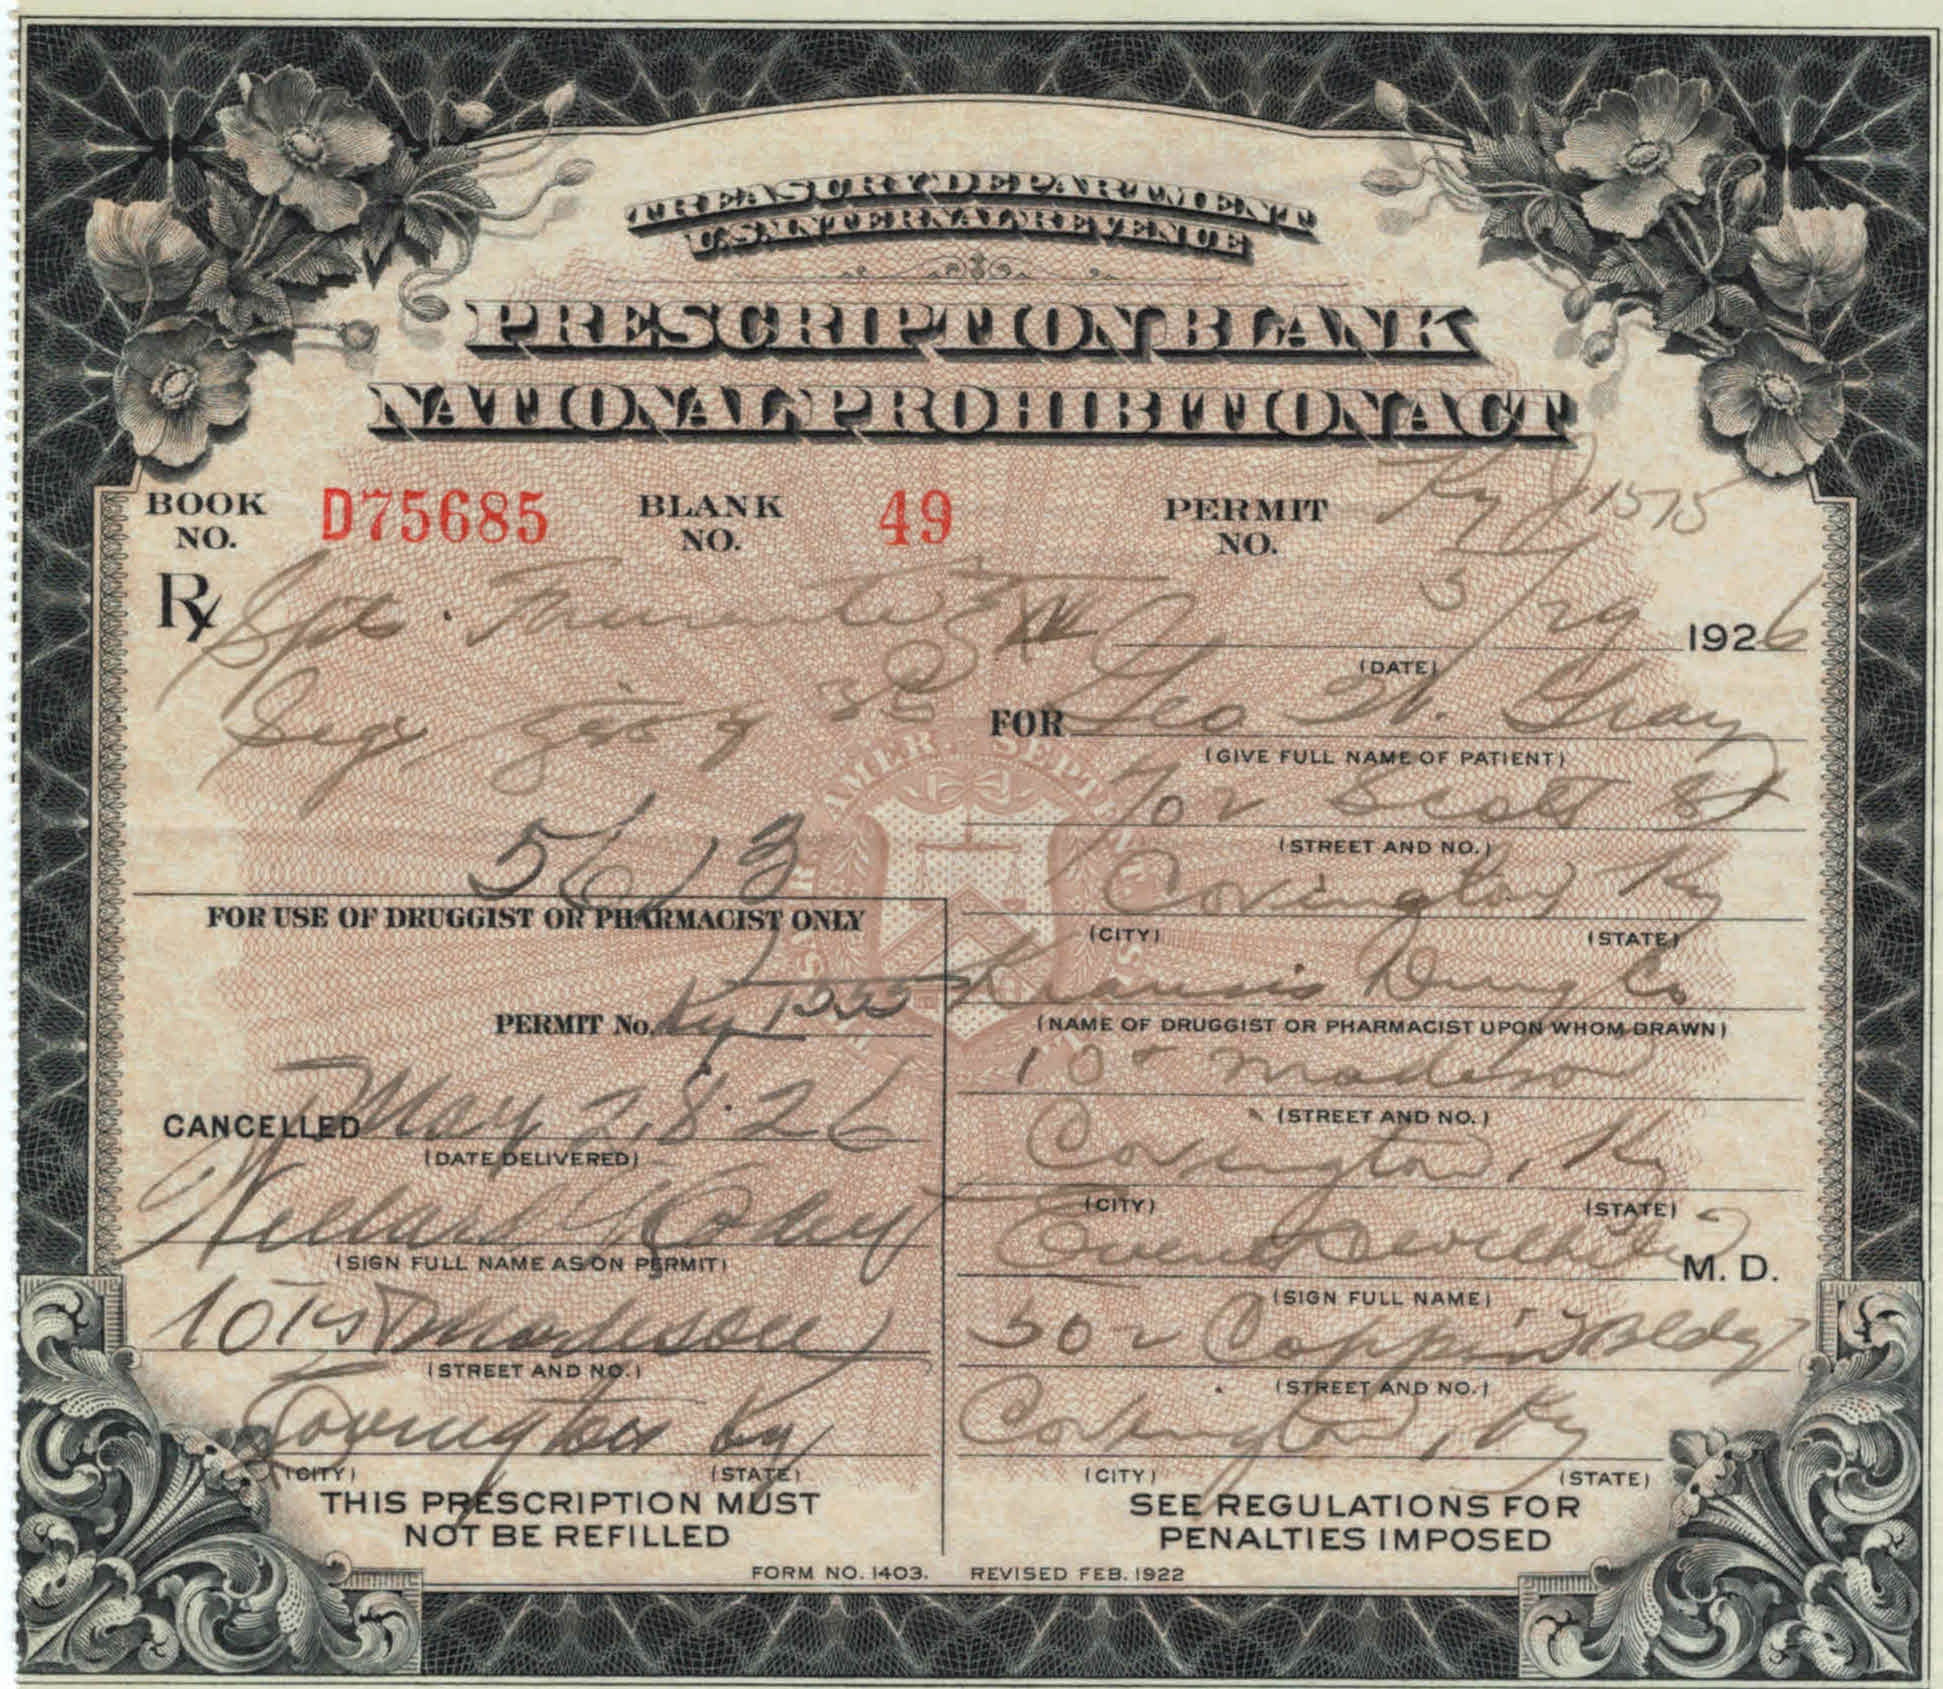 TREASURY DEPARTMENT
U.S. INTERNAL REVENUE
PRESCRIPTION BLANK
NATIONAL PROHIBITION ACT
BOOK NO. D75685 BLANK NO. 49 PERMIT NO. Ky 1575
Rx Spt. Frumenti
5/29 1926
(DATE)
FOR Geo W. Gray
(GIVE FULL NAME OF PATIENT)
702 Scott St
(STREET AND NO.)
5613
Covington Ky
(CITY) (STATE)
FOR USE OF DRUGGIST OR PHARMACIST ONLY
Drug Co
(NAME OF DRUGGIST OR PHARMACIST UPON WHOM DRAWN)
PERMIT No. Ky
Madison
(STREET AND NO.)
CANCELLED May 28. 26
(DATE DELIVERED)
Covington, Ky
(CITY) (STATE)
Willard
(SIGN FULL NAME AS ON PERMIT)
M. D.
(SIGN FULL NAME)
Madison
(STREET AND NO.)
502 Coppin Bldg
(STREET AND NO.)
Covington Ky
(CITY) (STATE)
Covington, Ky
(CITY) (STATE)
THIS PRESCRIPTION MUST
NOT BE REFILLED
SEE REGULATIONS FOR
PENALTIES IMPOSED
FORM NO. 1403. REVISED FEB. 1922